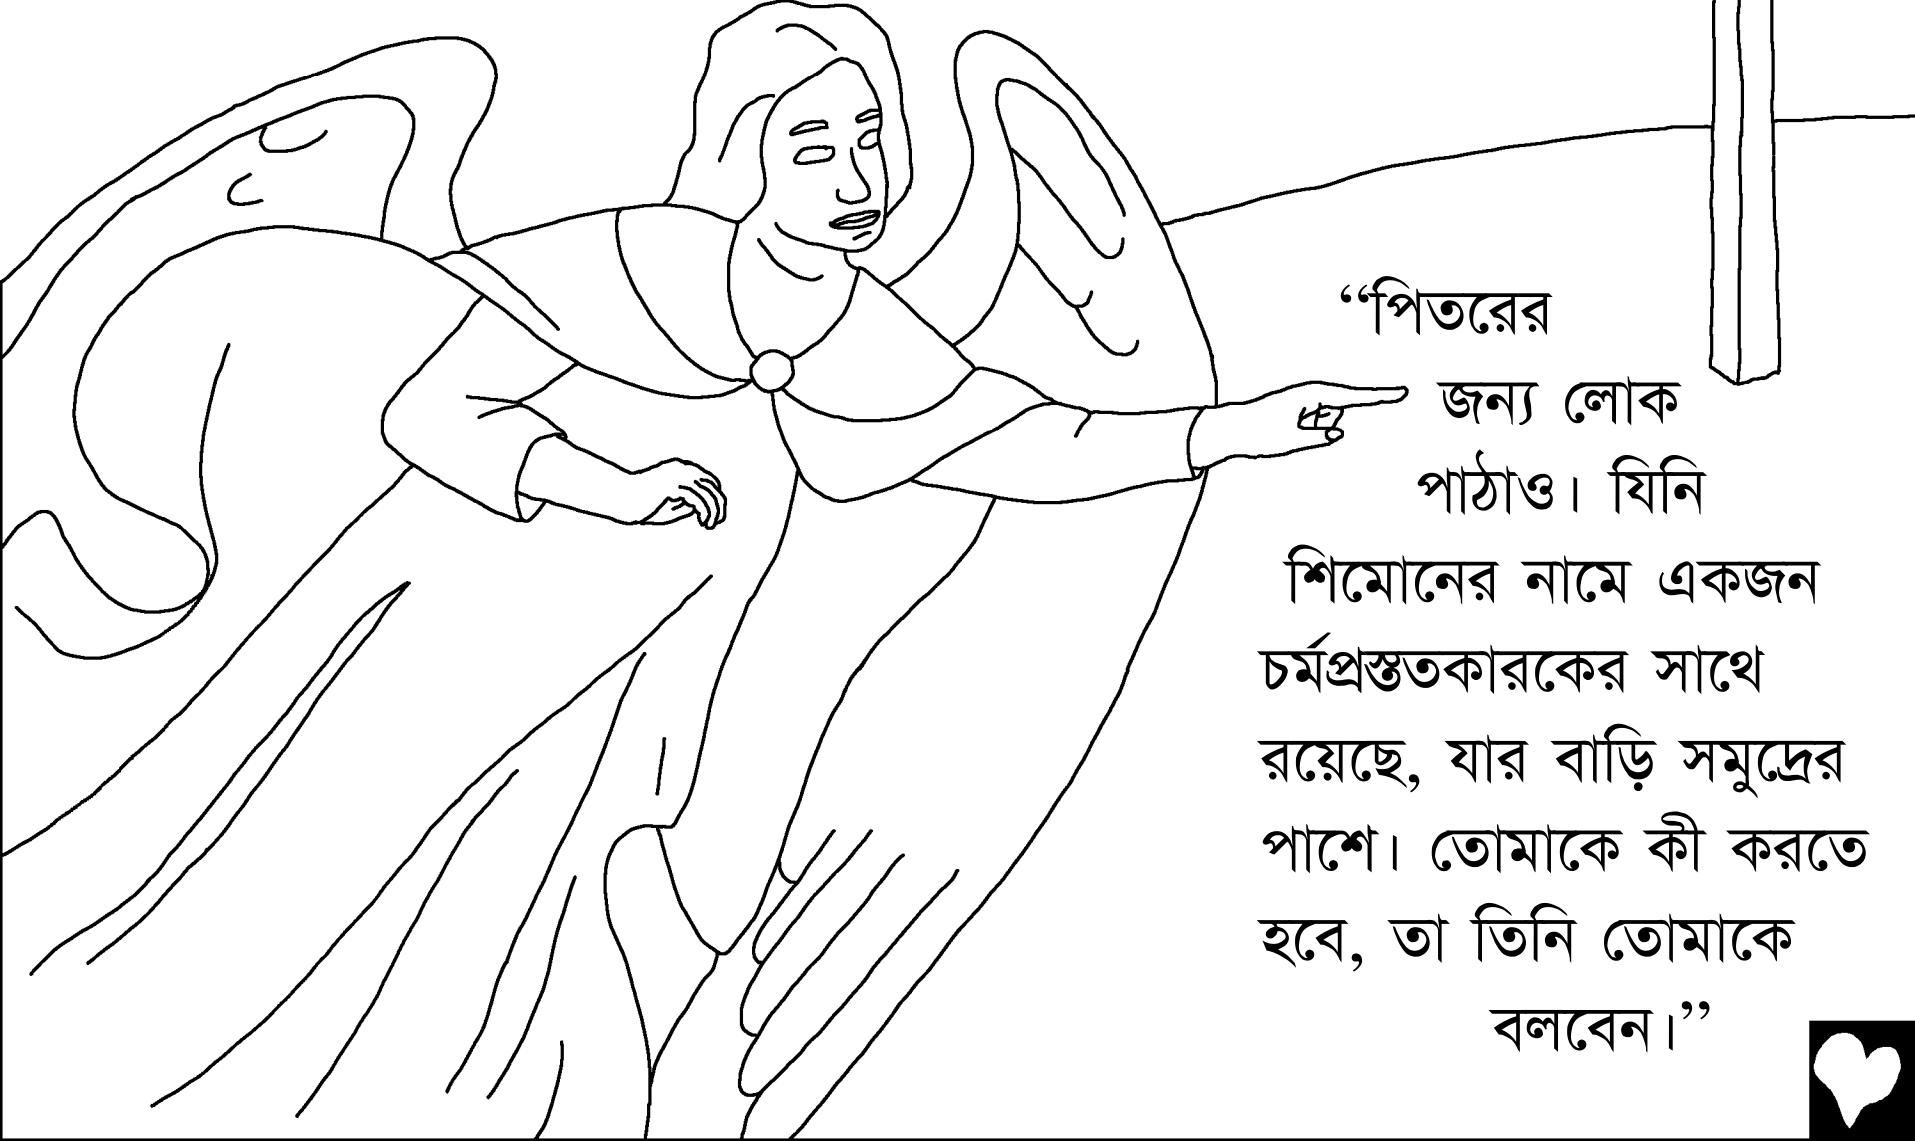 “পিতরের
জন্য লোক
পাঠাও। যিনি
শিমোনের নামে একজন
চর্মপ্রস্তুতকারকের সাথে
রয়েছে, যার বাড়ি সমুদ্রের
পাশে। তোমাকে কী করতে
হবে, তা তিনি তোমাকে
বলবেন।”